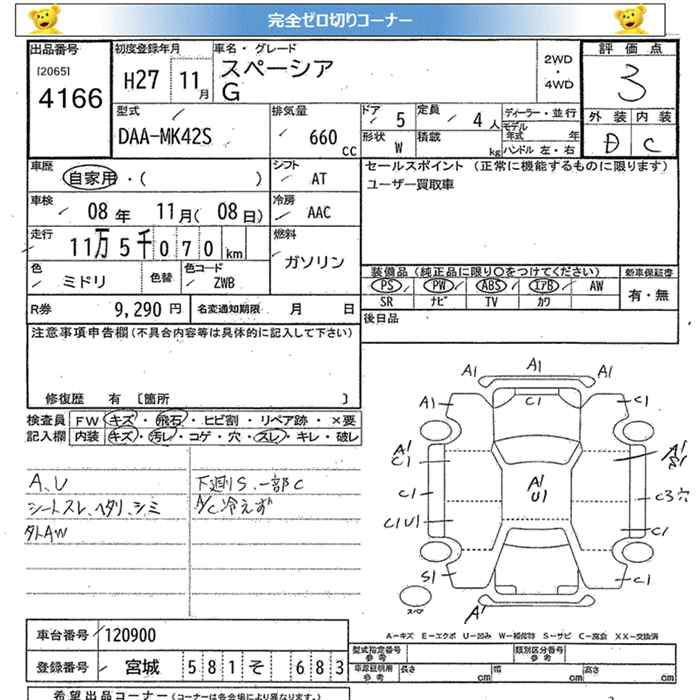 完全ゼロ切りコーナー
出品番号
[2065]
4166
初度登録年月
H27 11月
車名・グレード
スペーシア
G
2WD
・
4WD
評価点
3
外装 内装
D C
型式
DAA-MK42S
排気量
660 CC
ドア 5
定員 4人
ディーラー・並行
形状 W
積載 kg
モデル年式 年
ハンドル 左・右
車歴
自家用・( )
シフト
AT
セールスポイント (正常に機能するものに限ります)
ユーザー買取車
車検
08年 11月(08日)
冷房
AAC
走行
11万5千070km
燃料
ガソリン
色
ミドリ
色替
色コード
ZWB
装備品(純正品に限り○をつけてください)
新車保証書
PS PW ABS エアB AW
SR ナビ TV カワ
有・無
R券 9,290円
名変通知期限 月 日
後日品
注意事項申告欄(不具合内容等は具体的に記入して下さい)
修復歴 有 [箇所 ]
検査員
記入欄
FW キズ・飛石・ヒビ割・リペア跡・×要
内装 キズ・汚レ・コゲ・穴・スレ・キレ・破レ
A、U
シートスレ、ヘタリ、シミ
外AW
下廻りS、一部C
A/C冷えず
A1 A1 A1
A1 C1 C1
A1
C1
A1
U1
C1 C3穴
C1U1 C1
S1 C1
A1
スペア
A-キズ E-エクボ U-凹み W-補修跡 S-サビ C-腐食 XX-交換済
車台番号 120900
登録番号 宮城 581そ 683
型式指定番号
参考
類別区分番号
参考
車庫証明用
参考
長さ cm
幅 cm
高さ cm
希望出品コーナー(コーナーは各会場により異なります。)